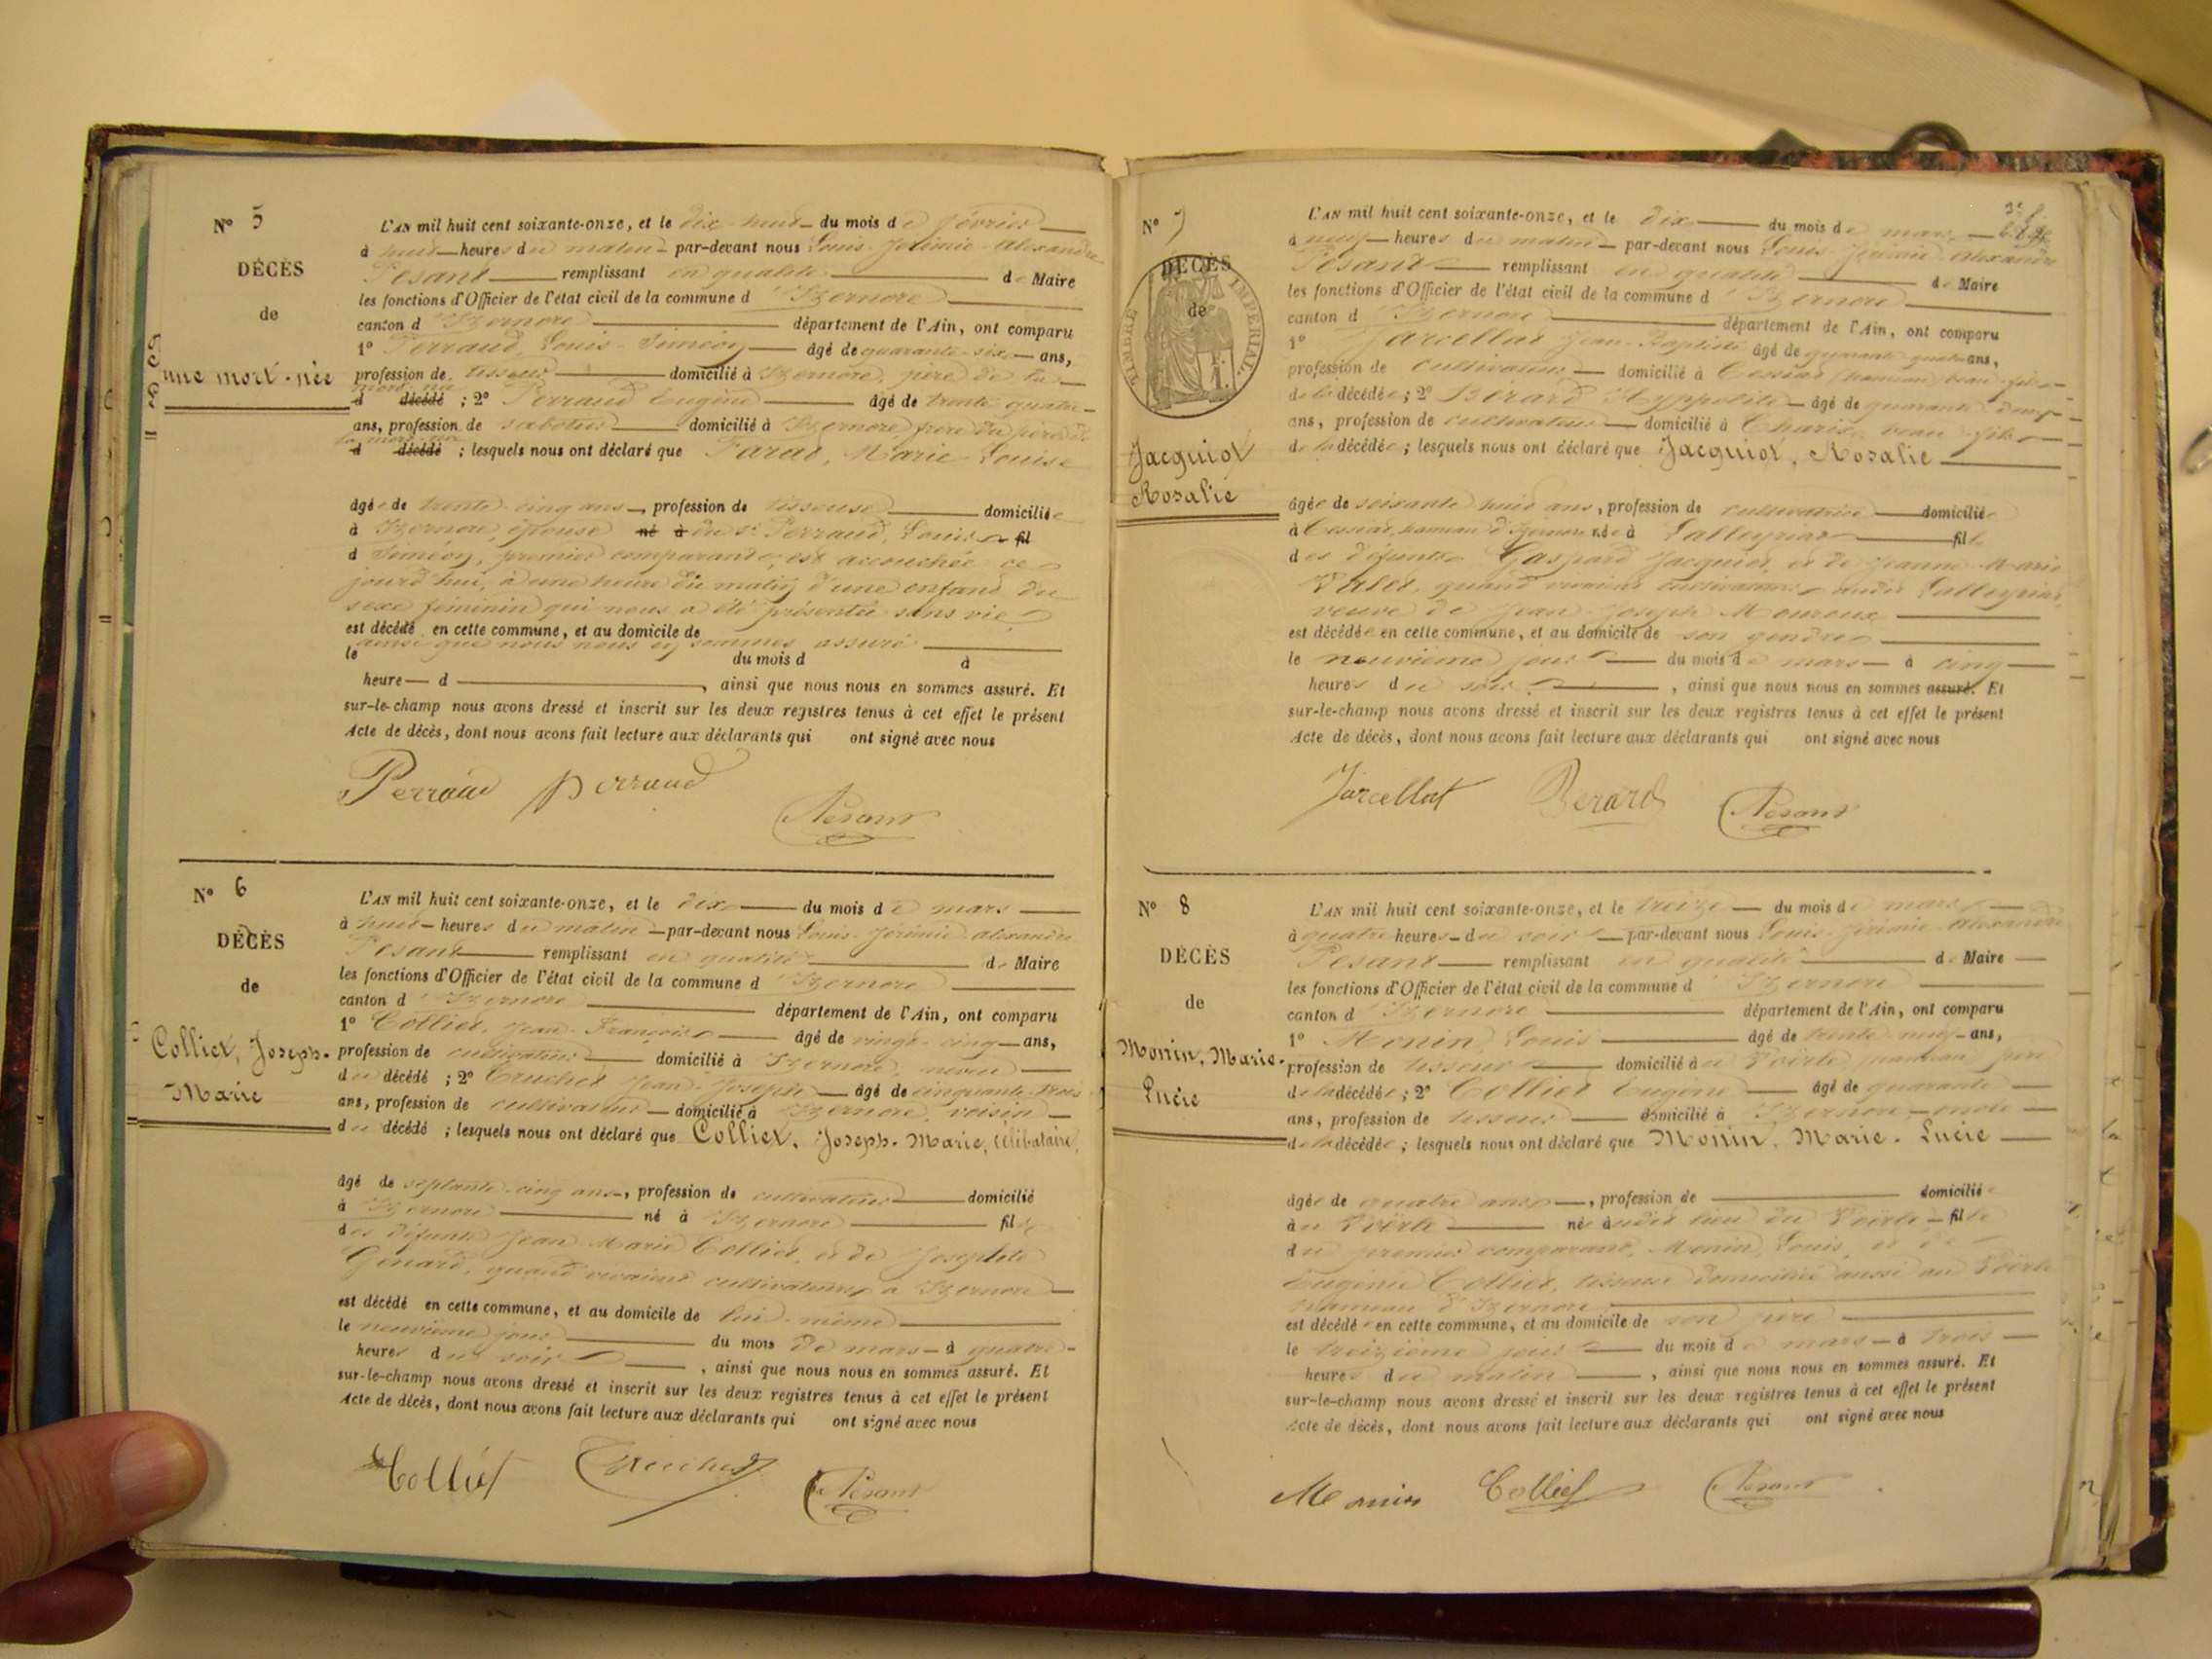 N° 5
DÉCÈS
de
une mort-née
L'AN mil huit cent soixante-onze, et le dix-huit du mois de février
à huit heures du matin par-devant nous Louis-Jérémie-Alexandre
Pesant remplissant en qualité de Maire
les fonctions d'Officier de l'état civil de la commune d'Izernore
canton d'Izernore département de l'Ain, ont comparu
1° Perraud, Louis-Siméon âgé de quarante-six ans,
profession de tisseur domicilié à Izernore, père de la
mort-née
d décédé ; 2° Perraud Eugène âgé de trente quatre
ans, profession de sabotier domicilié à Izernore, frère du père de
la mort-née
d décédé ; lesquels nous ont déclaré que Marie-Louise
âgée de trente-cinq ans, profession de tisseuse domiciliée
à Izernore, épouse né à du sr Perraud, Louis fil
d Siméon, premier comparant, est accouchée ce
jourd'hui, à une heure du matin d'une enfant du
sexe féminin qui nous a été présentée sans vie
est décédé en cette commune, et au domicile de
ainsi que nous nous en sommes assuré
le du mois d à
heure d , ainsi que nous nous en sommes assuré. Et
sur-le-champ nous avons dressé et inscrit sur les deux registres tenus à cet effet le présent
Acte de décès, dont nous avons fait lecture aux déclarants qui ont signé avec nous
Perraud Perraud
Pesant
N° 6
DÉCÈS
de
Colliet, Joseph-
Marie
L'AN mil huit cent soixante-onze, et le dix du mois de mars
à huit heures du matin par-devant nous Louis-Jérémie Alexandre
Pesant remplissant en qualité de Maire
les fonctions d'Officier de l'état civil de la commune d'Izernore
canton d'Izernore département de l'Ain, ont comparu
1° Colliet, Jean-François âgé de vingt-cinq ans,
profession de cultivateur domicilié à Izernore, neveu
du décédé ; 2° Truchet Jean-Joseph âgé de cinquante-trois
ans, profession de cultivateur domicilié à Izernore, voisin
du décédé ; lesquels nous ont déclaré que Colliet, Joseph-Marie, célibataire,
âgé de septante-cinq ans, profession de cultivateur domicilié
à Izernore né à Izernore fils
des défunts Jean Marie Colliet, et de Josephte
Génard, quand vivaient cultivateurs à Izernore
est décédé en cette commune, et au domicile de lui-même
le neuvième jour du mois de mars à quatre
heures du soir , ainsi que nous nous en sommes assuré. Et
sur-le-champ nous avons dressé et inscrit sur les deux registres tenus à cet effet le présent
Acte de décès, dont nous avons fait lecture aux déclarants qui ont signé avec nous
Colliet Truchet Pesant
N° 7
DÉCÈS
de
TIMBRE IMPÉRIAL
Jacquiot
Rosalie
L'AN mil huit cent soixante-onze, et le dix du mois de mars
à neuf heures du matin par-devant nous Louis-Jérémie Alexandre
Pesant remplissant en qualité de Maire
les fonctions d'Officier de l'état civil de la commune d'Izernore
canton d'Izernore département de l'Ain, ont comparu
1° Jarcellat Jean-Baptiste âgé de quarante-quatre ans,
profession de cultivateur domicilié à Cessiat (hameau) beau-fils
de la décédée ; 2° Bérard Hyppolite âgé de quarante
ans, profession de cultivateur domicilié à Charix beau-fils
de la décédée ; lesquels nous ont déclaré que Jacquiot, Rosalie
âgée de soixante huit ans, profession de cultivatrice domiciliée
à Cessiat, hameau d'Izernore née à Lalleyriat fille
des défunts Gaspard Jacquiot, et de Jeanne Marie
quand vivaient cultivateurs audit Lalleyriat,
veuve de Jean-Joseph
est décédée en cette commune, et au domicile de son gendre
le neuvième jour du mois de mars à cinq
heures du soir , ainsi que nous nous en sommes assuré. Et
sur-le-champ nous avons dressé et inscrit sur les deux registres tenus à cet effet le présent
Acte de décès, dont nous avons fait lecture aux déclarants qui ont signé avec nous
Jarcellat Berard Pesant
N° 8
DÉCÈS
de
Monin, Marie-
Lucie
L'AN mil huit cent soixante-onze, et le treize du mois de mars
à quatre heures du soir par-devant nous Louis-Jérémie-Alexandre
Pesant remplissant en qualité de Maire
les fonctions d'Officier de l'état civil de la commune d'Izernore
canton d'Izernore département de l'Ain, ont comparu
1° Monin, Louis âgé de trente neuf ans,
profession de tisseur domicilié au Voërle hameau, père
de la décédée ; 2° Colliet Eugène âgé de quarante
ans, profession de tisseur domicilié à Izernore oncle
de la décédée ; lesquels nous ont déclaré que Monin, Marie-Lucie
âgée de quatre ans, profession de domiciliée
au Voërle née audit lieu du Voërle fille
du premier comparant, Monin, Louis, et de
Eugénie Colliet, tisseuse domiciliée aussi au Voërle
hameau d'Izernore
est décédée en cette commune, et au domicile de son père
le treizième jour du mois de mars à trois
heures du matin , ainsi que nous nous en sommes assuré. Et
sur-le-champ nous avons dressé et inscrit sur les deux registres tenus à cet effet le présent
Acte de décès, dont nous avons fait lecture aux déclarants qui ont signé avec nous
Monin Colliet Pesant